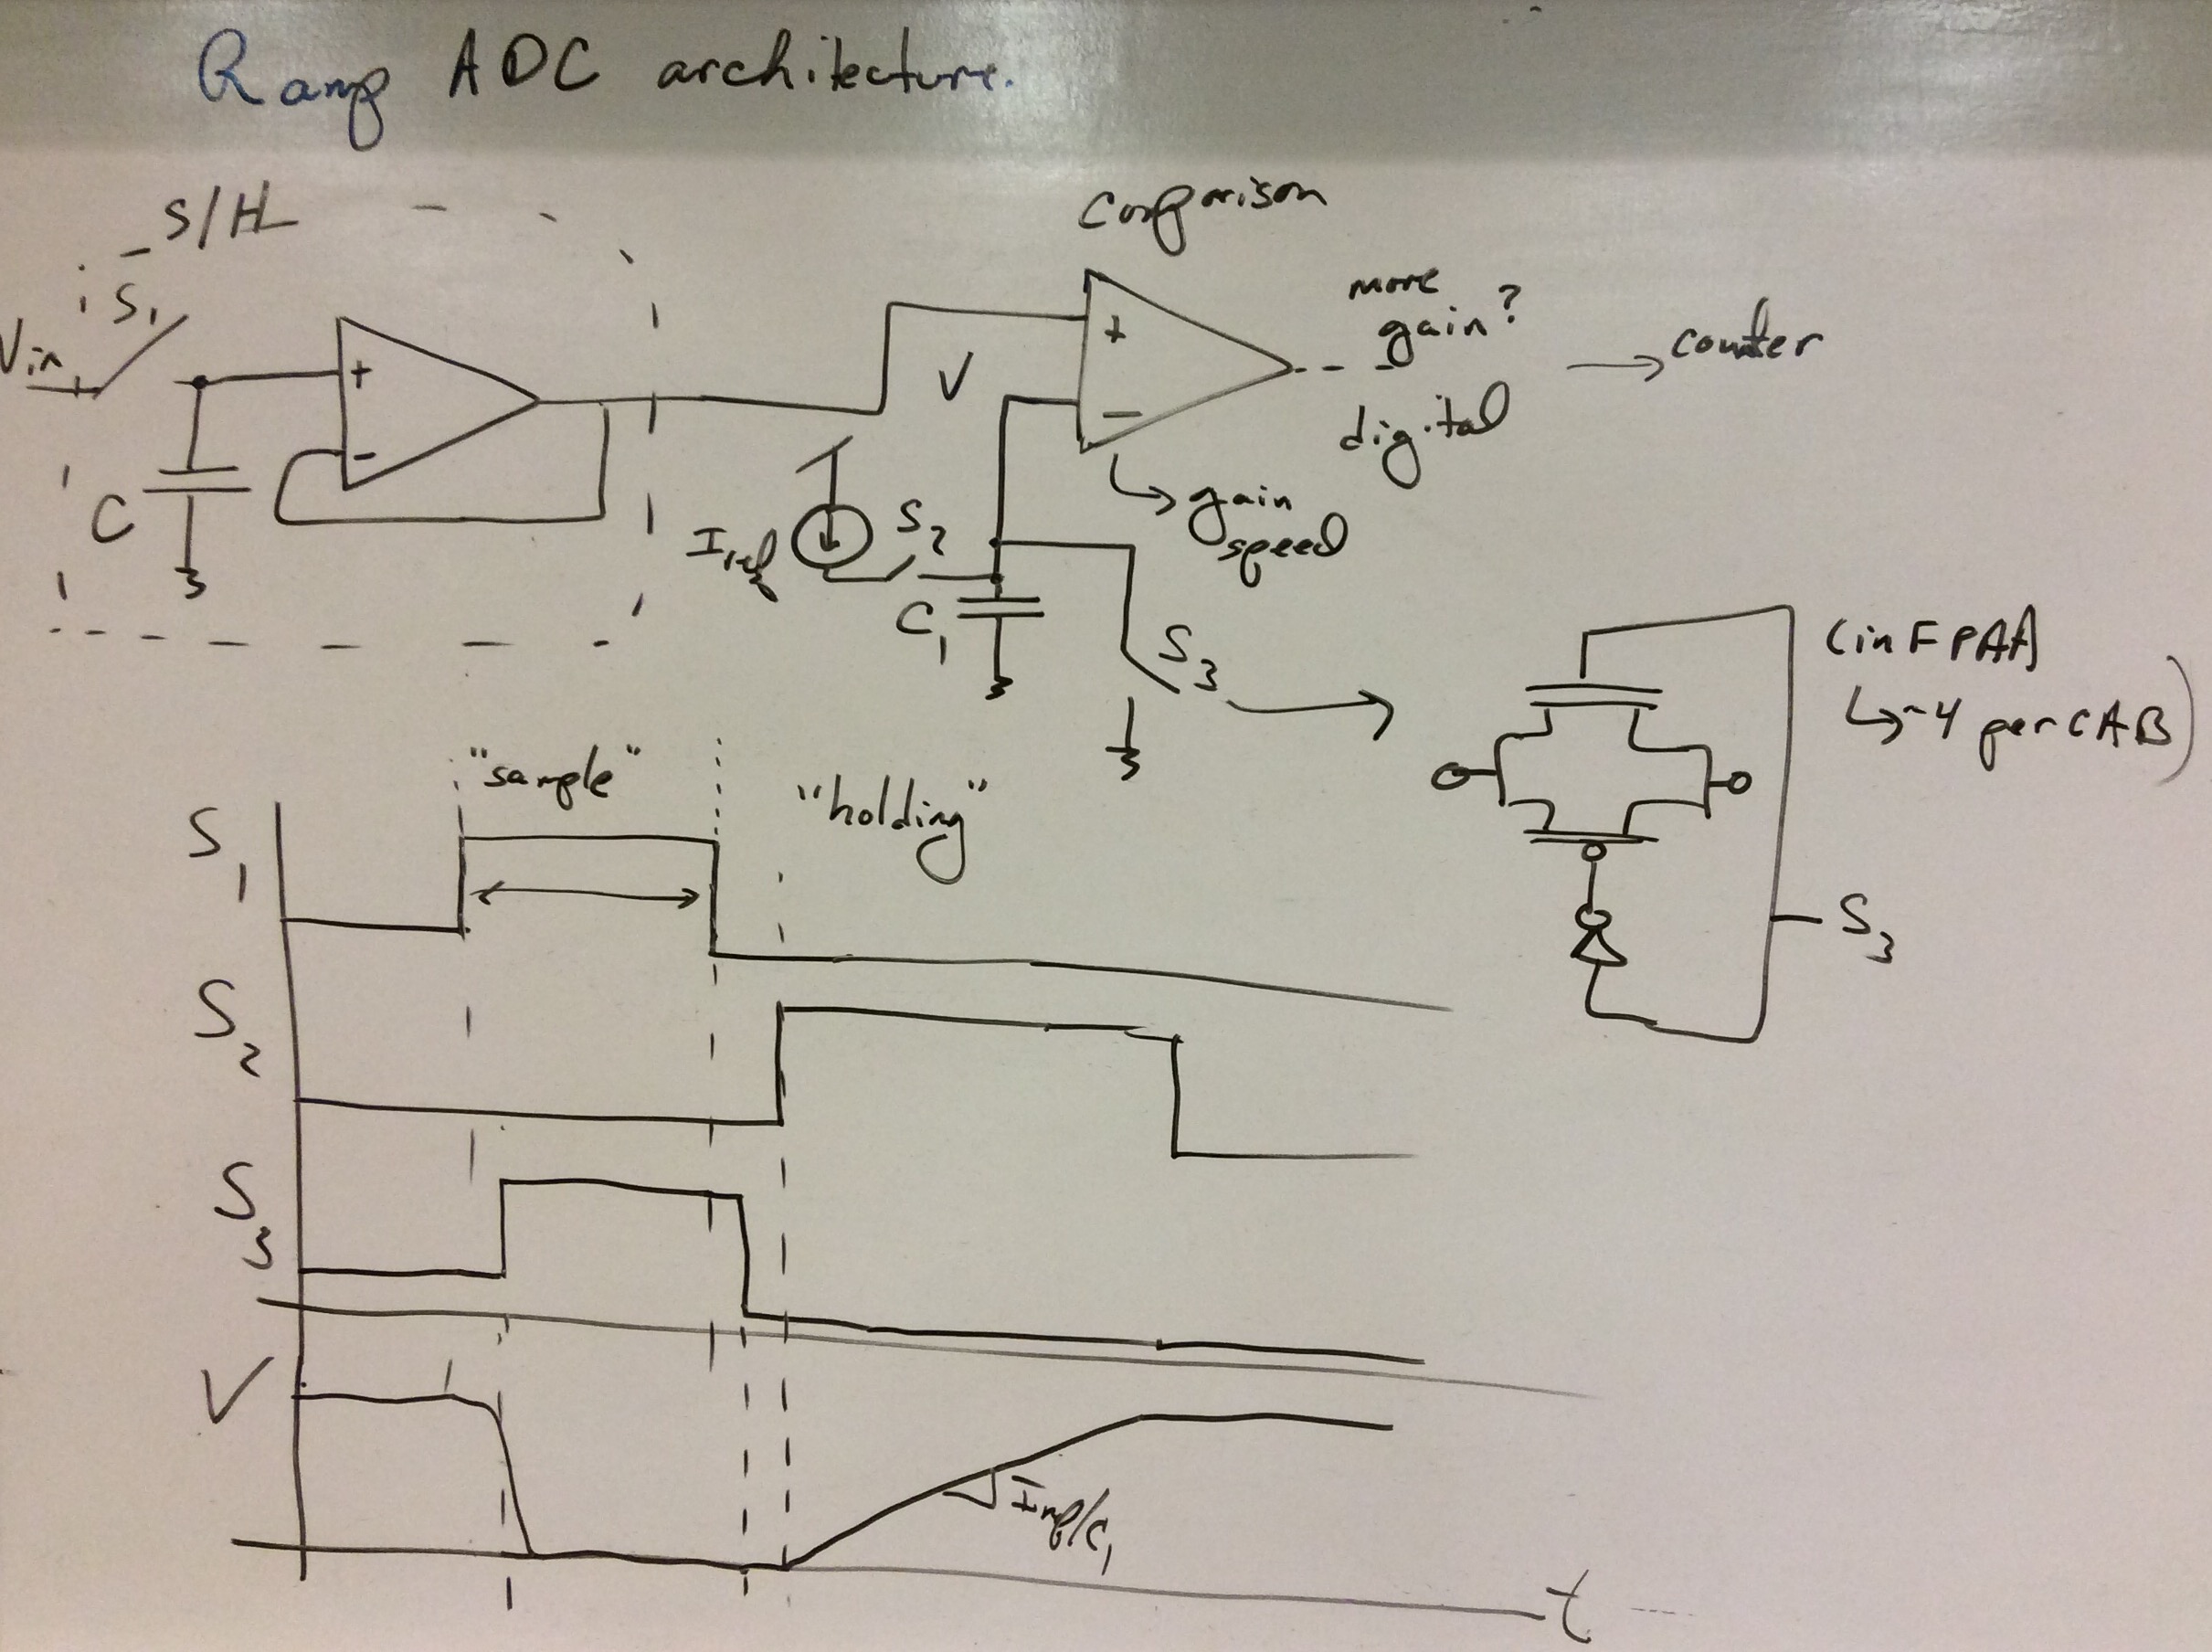 Ramp ADC architecture.
S/H
S1
Vin
+
-
C
Comparison
V
+
-
more
gain?
digital
→ counter
gain
speed
Iref
S2
C1
S3
(in FPAA
↳ ~4 per CAB)
S3
"sample"
"holding"
S1
S2
S3
V
Iref/C1
t